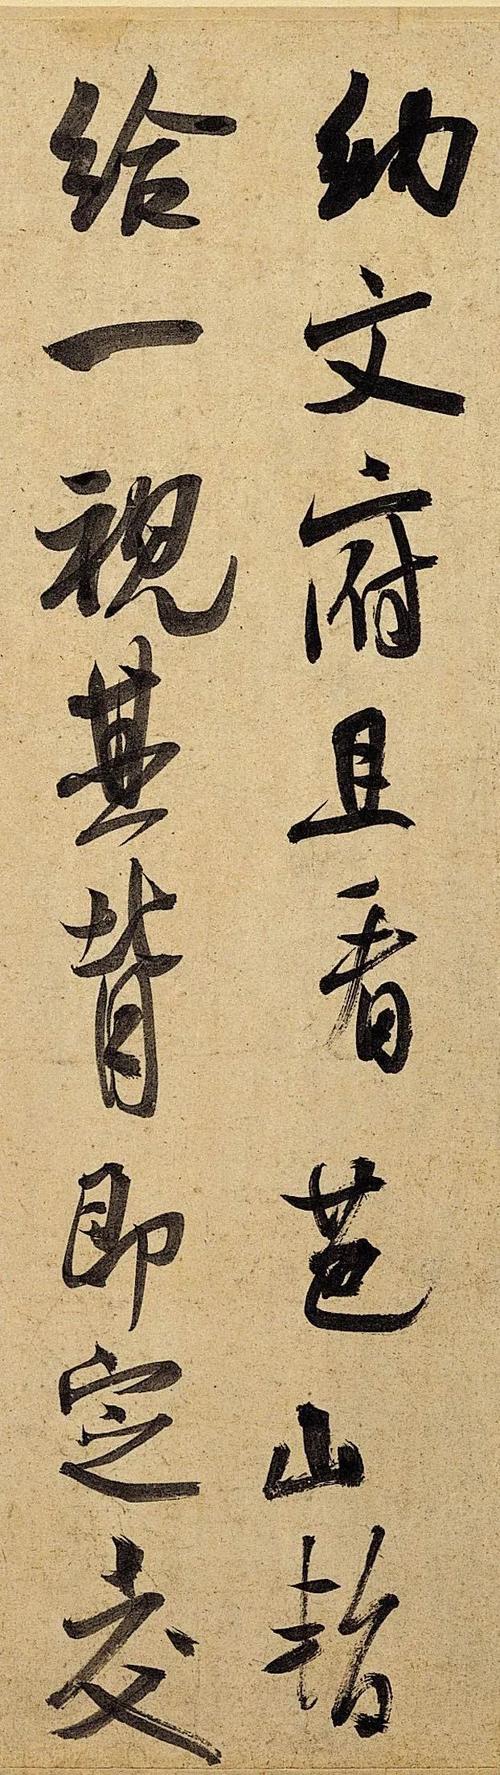 納文府且看芭山暫
給一視其背即定交